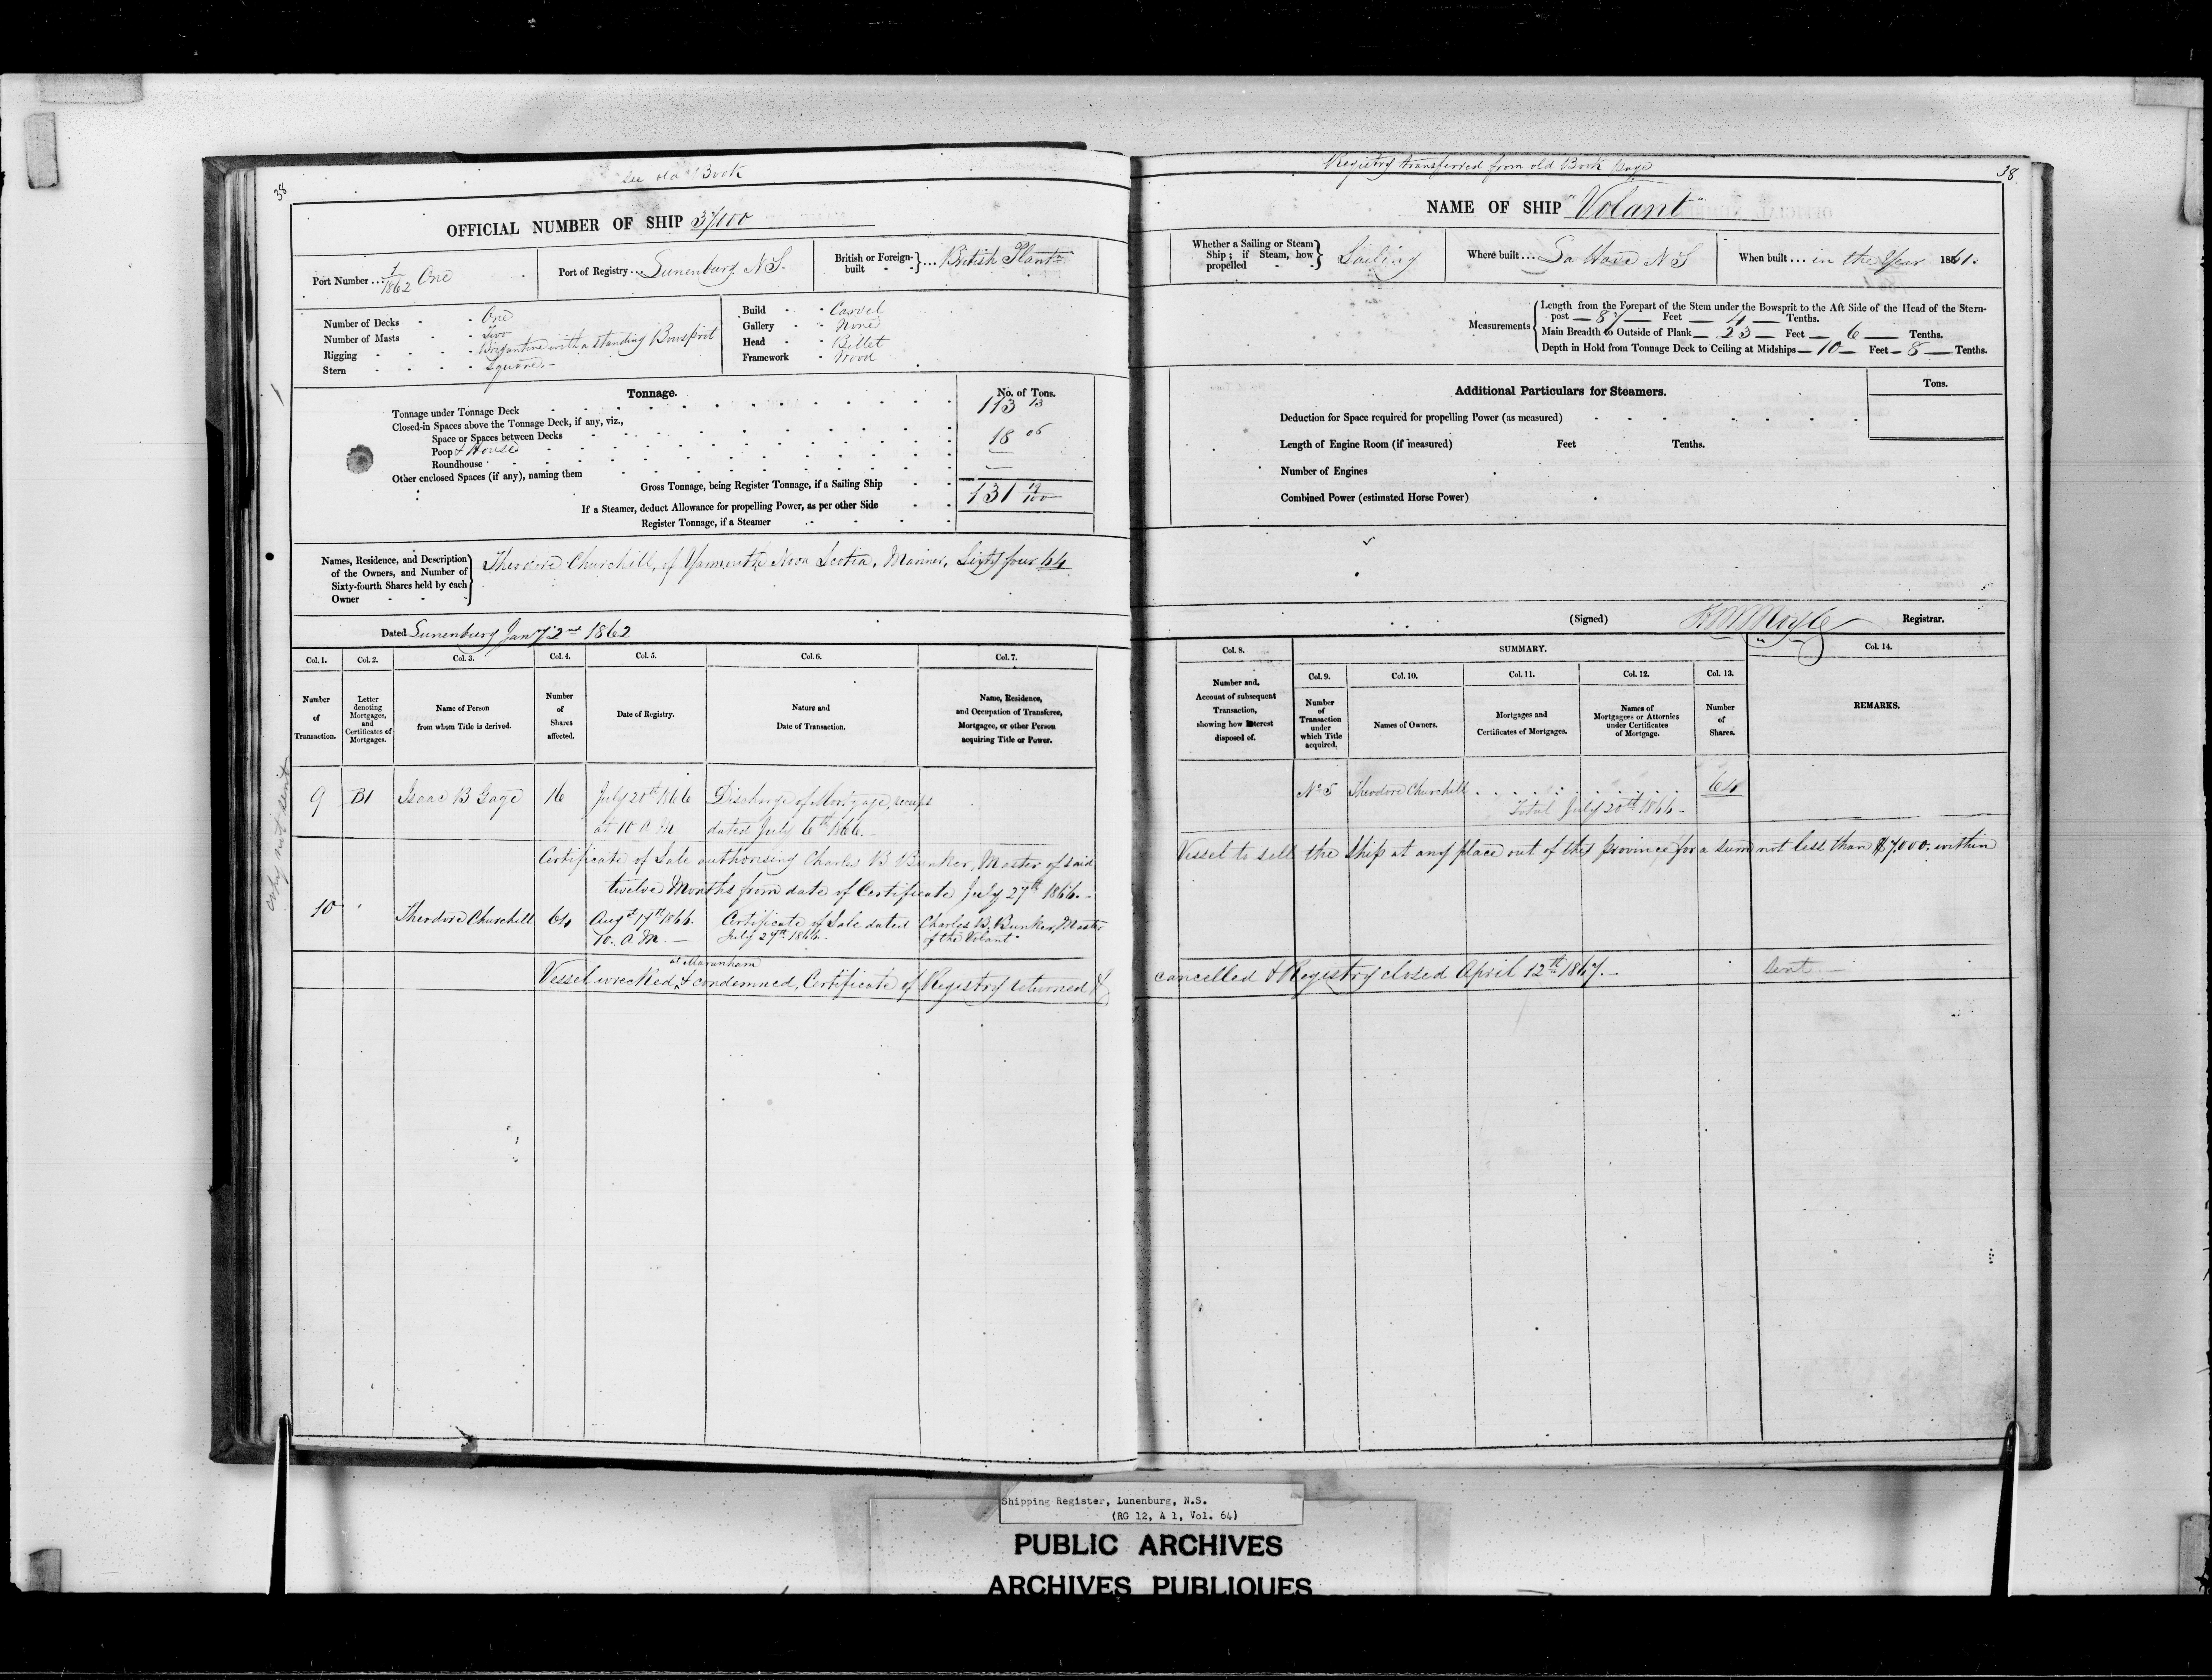 38
See old Book
OFFICIAL NUMBER OF SHIP 37100
Port Number ... 1/1862 One
Port of Registry ... Lunenburg N S.
British or Foreign-built } ... British Plantn
Number of Decks - - One
Number of Masts - - Two
Rigging - - - - Brigantine with a standing Bowsprit
Stern - - - - Square.-
Build - - Carvel
Gallery - - None
Head - - Billet
Framework - Wood
Tonnage.
No. of Tons.
Tonnage under Tonnage Deck 113 13
Closed-in Spaces above the Tonnage Deck, if any, viz.,
Space or Spaces between Decks
Poop & House 18 06
Roundhouse
Other enclosed Spaces (if any), naming them
Gross Tonnage, being Register Tonnage, if a Sailing Ship 131 19/100
If a Steamer, deduct Allowance for propelling Power, as per other Side
Register Tonnage, if a Steamer
Names, Residence, and Description
of the Owners, and Number of
Sixty-fourth Shares held by each
Owner
Theodore Churchill, of Yarmouth Nova Scotia, Mariner, Sixty four 64
Dated Lunenburg Jany 2nd 1862
Col. 1. Col. 2. Col. 3. Col. 4. Col. 5. Col. 6. Col. 7.
Number of Transaction.
Letter denoting Mortgages, and Certificates of Mortgages.
Name of Person from whom Title is derived.
Number of Shares affected.
Date of Registry.
Nature and Date of Transaction.
Name, Residence, and Occupation of Transferee, Mortgagee, or other Person acquiring Title or Power.
9 B1 Isaac B Gage 16 July 20th 1866 Discharge of Mortgage, receipt
at 10 A M dated July 6th 1866.-
Certificate of Sale authorising Charles B Bunker, Master of said
twelve Months from date of Certificate July 27th 1866.-
10 Theodore Churchill 64 Augst 17th 1866. Certificate of Sale dated Charles B. Bunker, Master
10. A M. - July 27th 1866. of the Volant
at Maranham
Vessel wrecked, & condemned, Certificate of Registry returned &
Copy not sent
Registry transferred from old Book page
38
NAME OF SHIP "Volant"
Whether a Sailing or Steam Ship; if Steam, how propelled } Sailing
Where built ... La Have N S
When built ... in the Year 1861.
Measurements
Length from the Forepart of the Stem under the Bowsprit to the Aft Side of the Head of the Stern-
post — 87 — Feet — 4 — Tenths.
Main Breadth to Outside of Plank — 23 — Feet — 6 — Tenths.
Depth in Hold from Tonnage Deck to Ceiling at Midships — 10 — Feet — 8 — Tenths.
Additional Particulars for Steamers.
Tons.
Deduction for Space required for propelling Power (as measured)
Length of Engine Room (if measured) Feet Tenths.
Number of Engines
Combined Power (estimated Horse Power)
(Signed) Registrar.
Col. 8. SUMMARY. Col. 14.
Col. 9. Col. 10. Col. 11. Col. 12. Col. 13.
Number and, Account of subsequent Transaction, showing how Interest disposed of.
Number of Transaction under which Title acquired.
Names of Owners.
Mortgages and Certificates of Mortgages.
Names of Mortgagees or Attornies under Certificates of Mortgage.
Number of Shares.
REMARKS.
No 5 Theodore Churchill . . . . . . . . . 64
Total July 20th 1866-
Vessel to sell the Ship at any place out of the province for a sum not less than $7,000. within
cancelled & Registry closed April 12th 1867.- Sent.-
Shipping Register, Lunenburg, N.S.
(RG 12, A 1, Vol. 64)
PUBLIC ARCHIVES
ARCHIVES PUBLIQUES